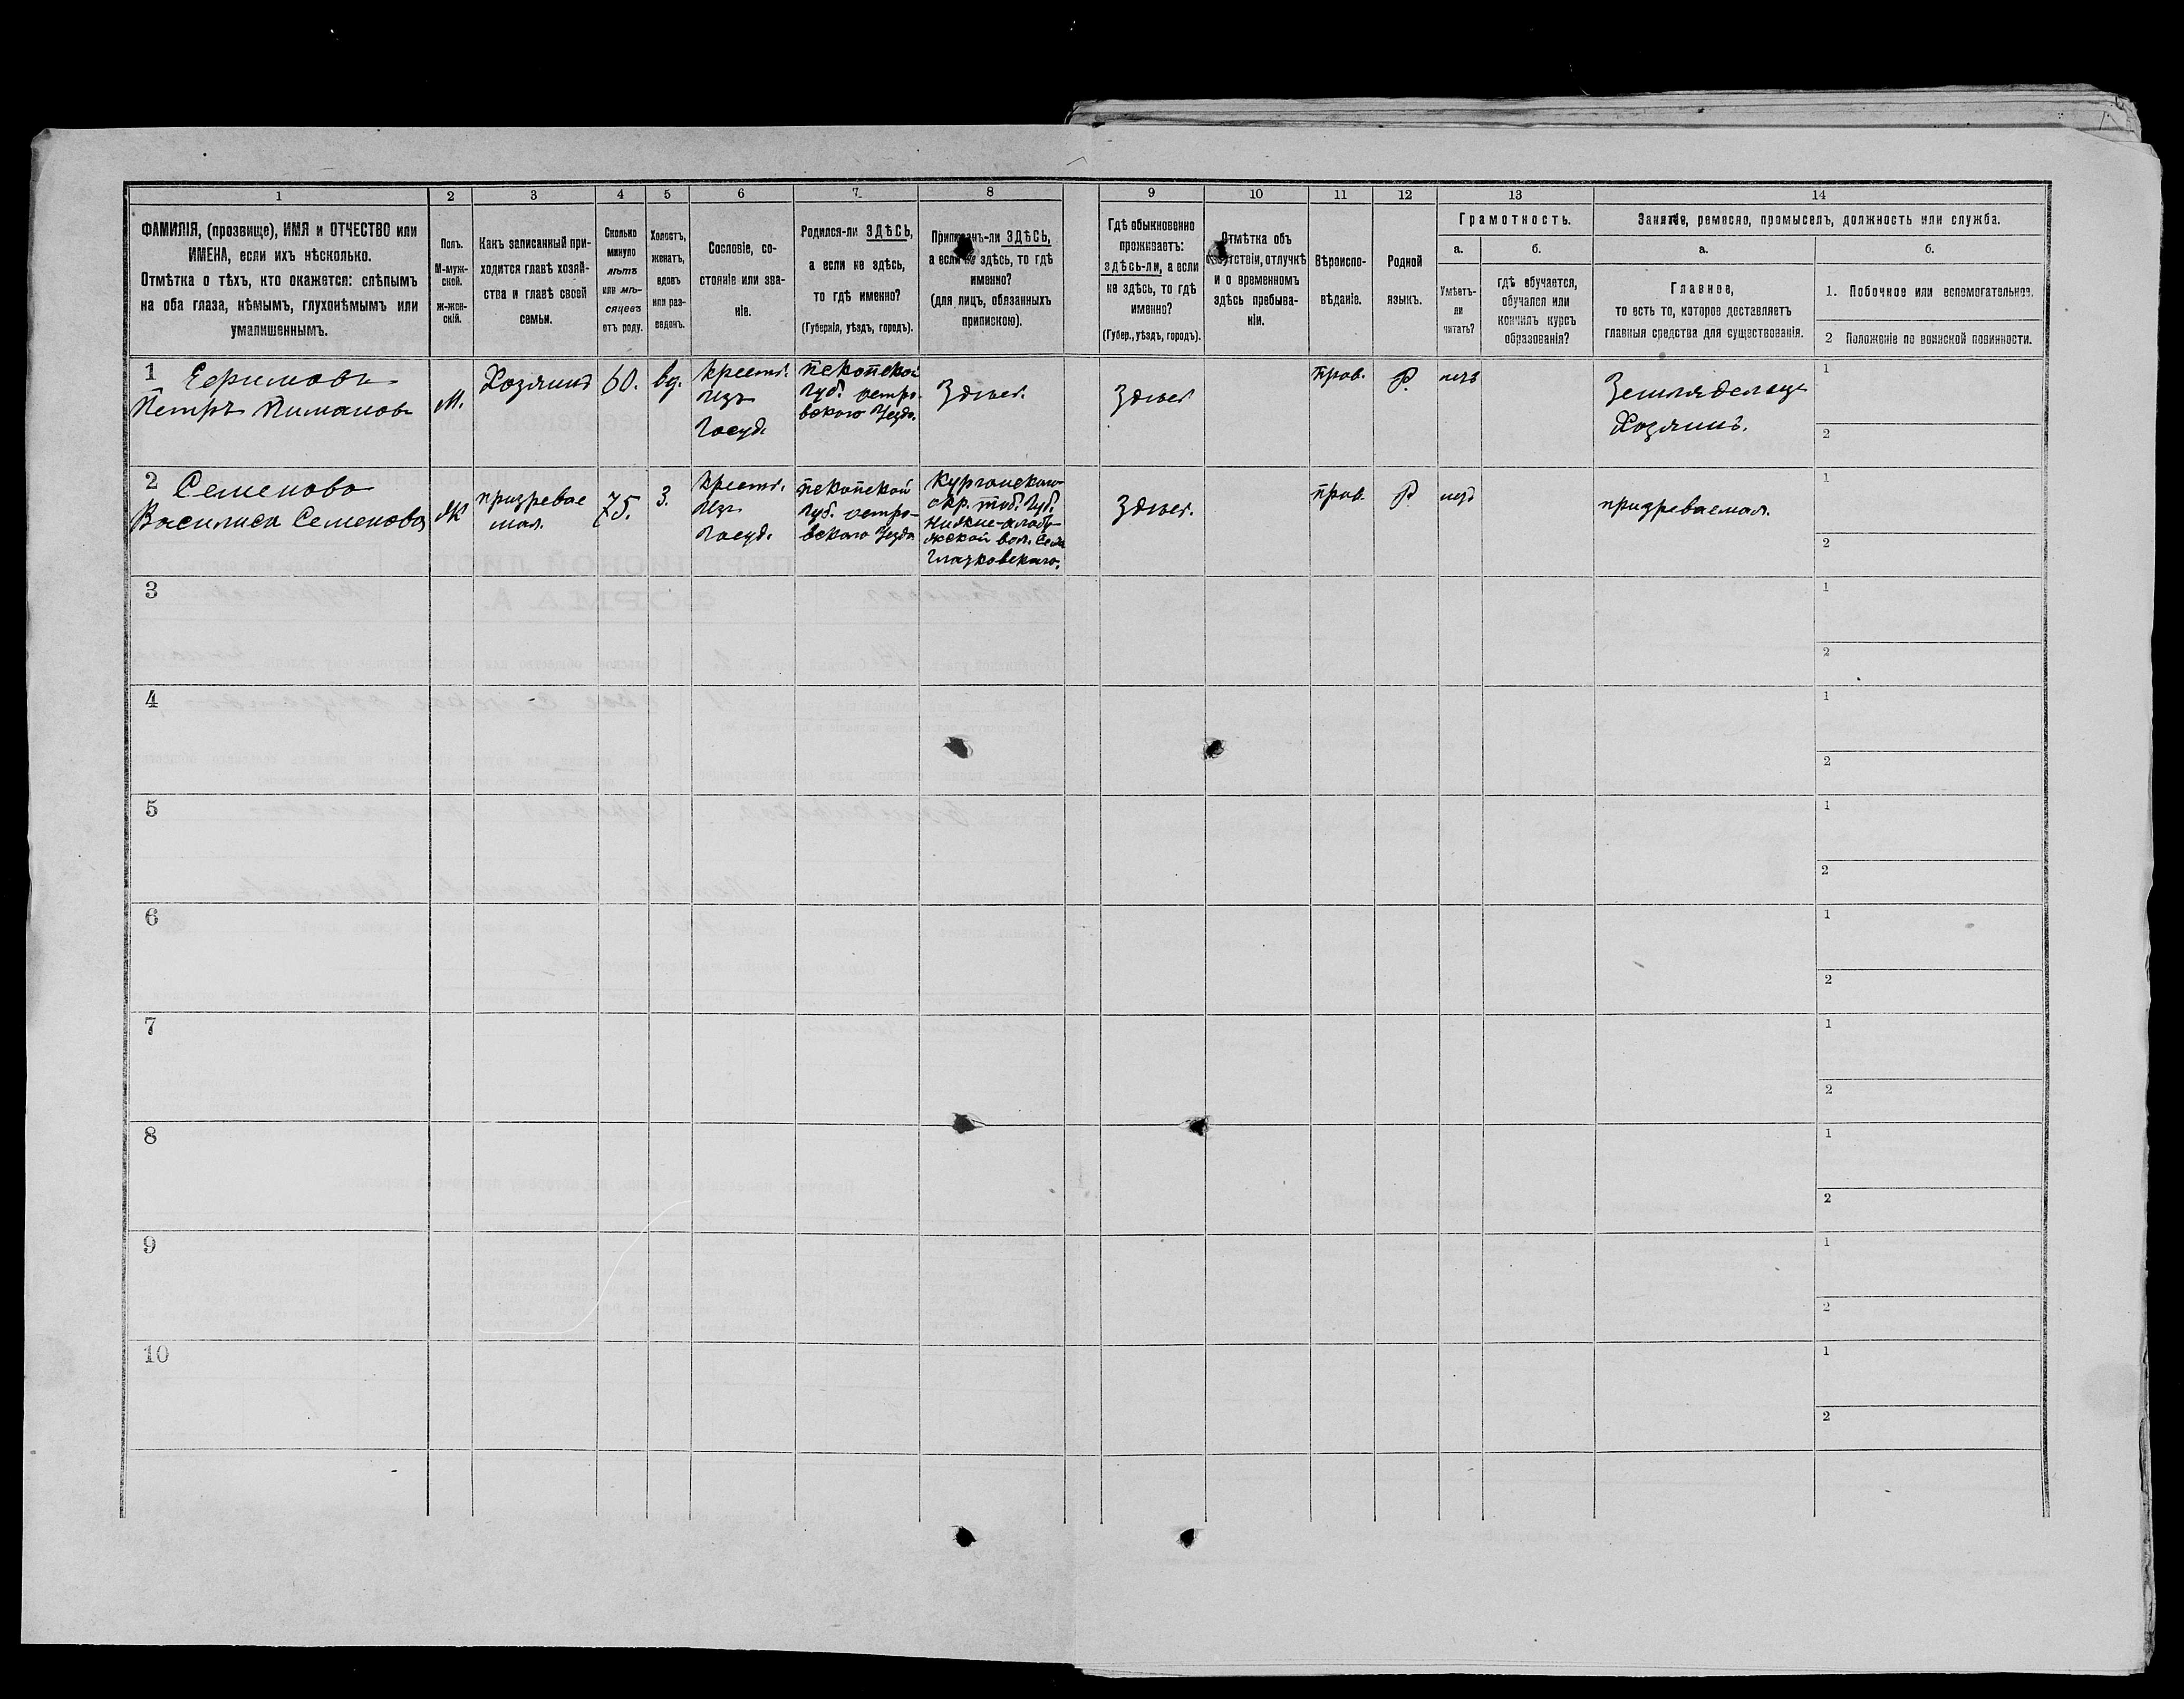 1 2 3 4 5 6 7 8 9 10 11 12 13 14
ФАМИЛІЯ, (прозвище), ИМЯ и ОТЧЕСТВО или
ИМЕНА, если ихъ нѣсколько.
Отмѣтка о тѣхъ, кто окажется: слѣпымъ
на оба глаза, нѣмымъ, глухонѣмымъ или
умалишеннымъ.
Полъ.
М-муж-
ской.
ж-жен-
скій.
Какъ записанный при-
ходится главѣ хозяй-
ства и главѣ своей
семьи.
Сколько
минуло
лѣтъ
или мѣ-
сяцевъ
отъ роду.
Холостъ,
женатъ,
вдовъ
или раз-
веденъ.
Сословіе, со-
стояніе или зва-
ніе.
Родился-ли ЗДѢСЬ,
а если не здѣсь,
то гдѣ именно?
(Губернія, уѣздъ, городъ).
Приписанъ-ли ЗДѢСЬ,
а если не здѣсь, то гдѣ
именно?
(для лицъ, обязанныхъ
припискою).
Гдѣ обыкновенно
проживаетъ:
здѣсь-ли, а если
не здѣсь, то гдѣ
именно?
(Губер., уѣздъ, городъ).
Отмѣтка объ
отсутствіи, отлучкѣ
и о временномъ
здѣсь пребыва-
ніи.
Вѣроиспо-
вѣданіе.
Родной
языкъ.
Грамотность.
а.
Умѣетъ-
ли
читать?
б.
гдѣ обучается,
обучался или
кончилъ курсъ
образованія?
Занятіе, ремесло, промыселъ, должность или служба.
а.
Главное,
то есть то, которое доставляетъ
главныя средства для существованія.
б.
1. Побочное или вспомогательное.
2 Положеніе по воинской повинности.
1 Ефимовъ
Петръ Пимановъ
М.
Хозяинъ
60.
вд.
крест.
изъ
Госуд.
псковской
Губ. остро-
вскаго Уезда.
Здѣсь.
Здѣсь
прав.
Р.
нетъ
Земляделецъ
Хозяинъ.
1
2
2 Семенова
Василиса Семенова
Ж
призревае
мая.
75.
З.
крест.
изъ
Госуд.
псковской
Губ. остро-
вскаго Уезда
Курганскаго
окр. тоб. Губ.
Нижне-алаб-
ской вол. села
Глазковскаго.
Здѣсь.
прав.
Р
нетъ
призреваемая.
1
2
3
1
2
4
1
2
5
1
2
6
1
2
7
1
2
8
1
2
9
1
2
10
1
2